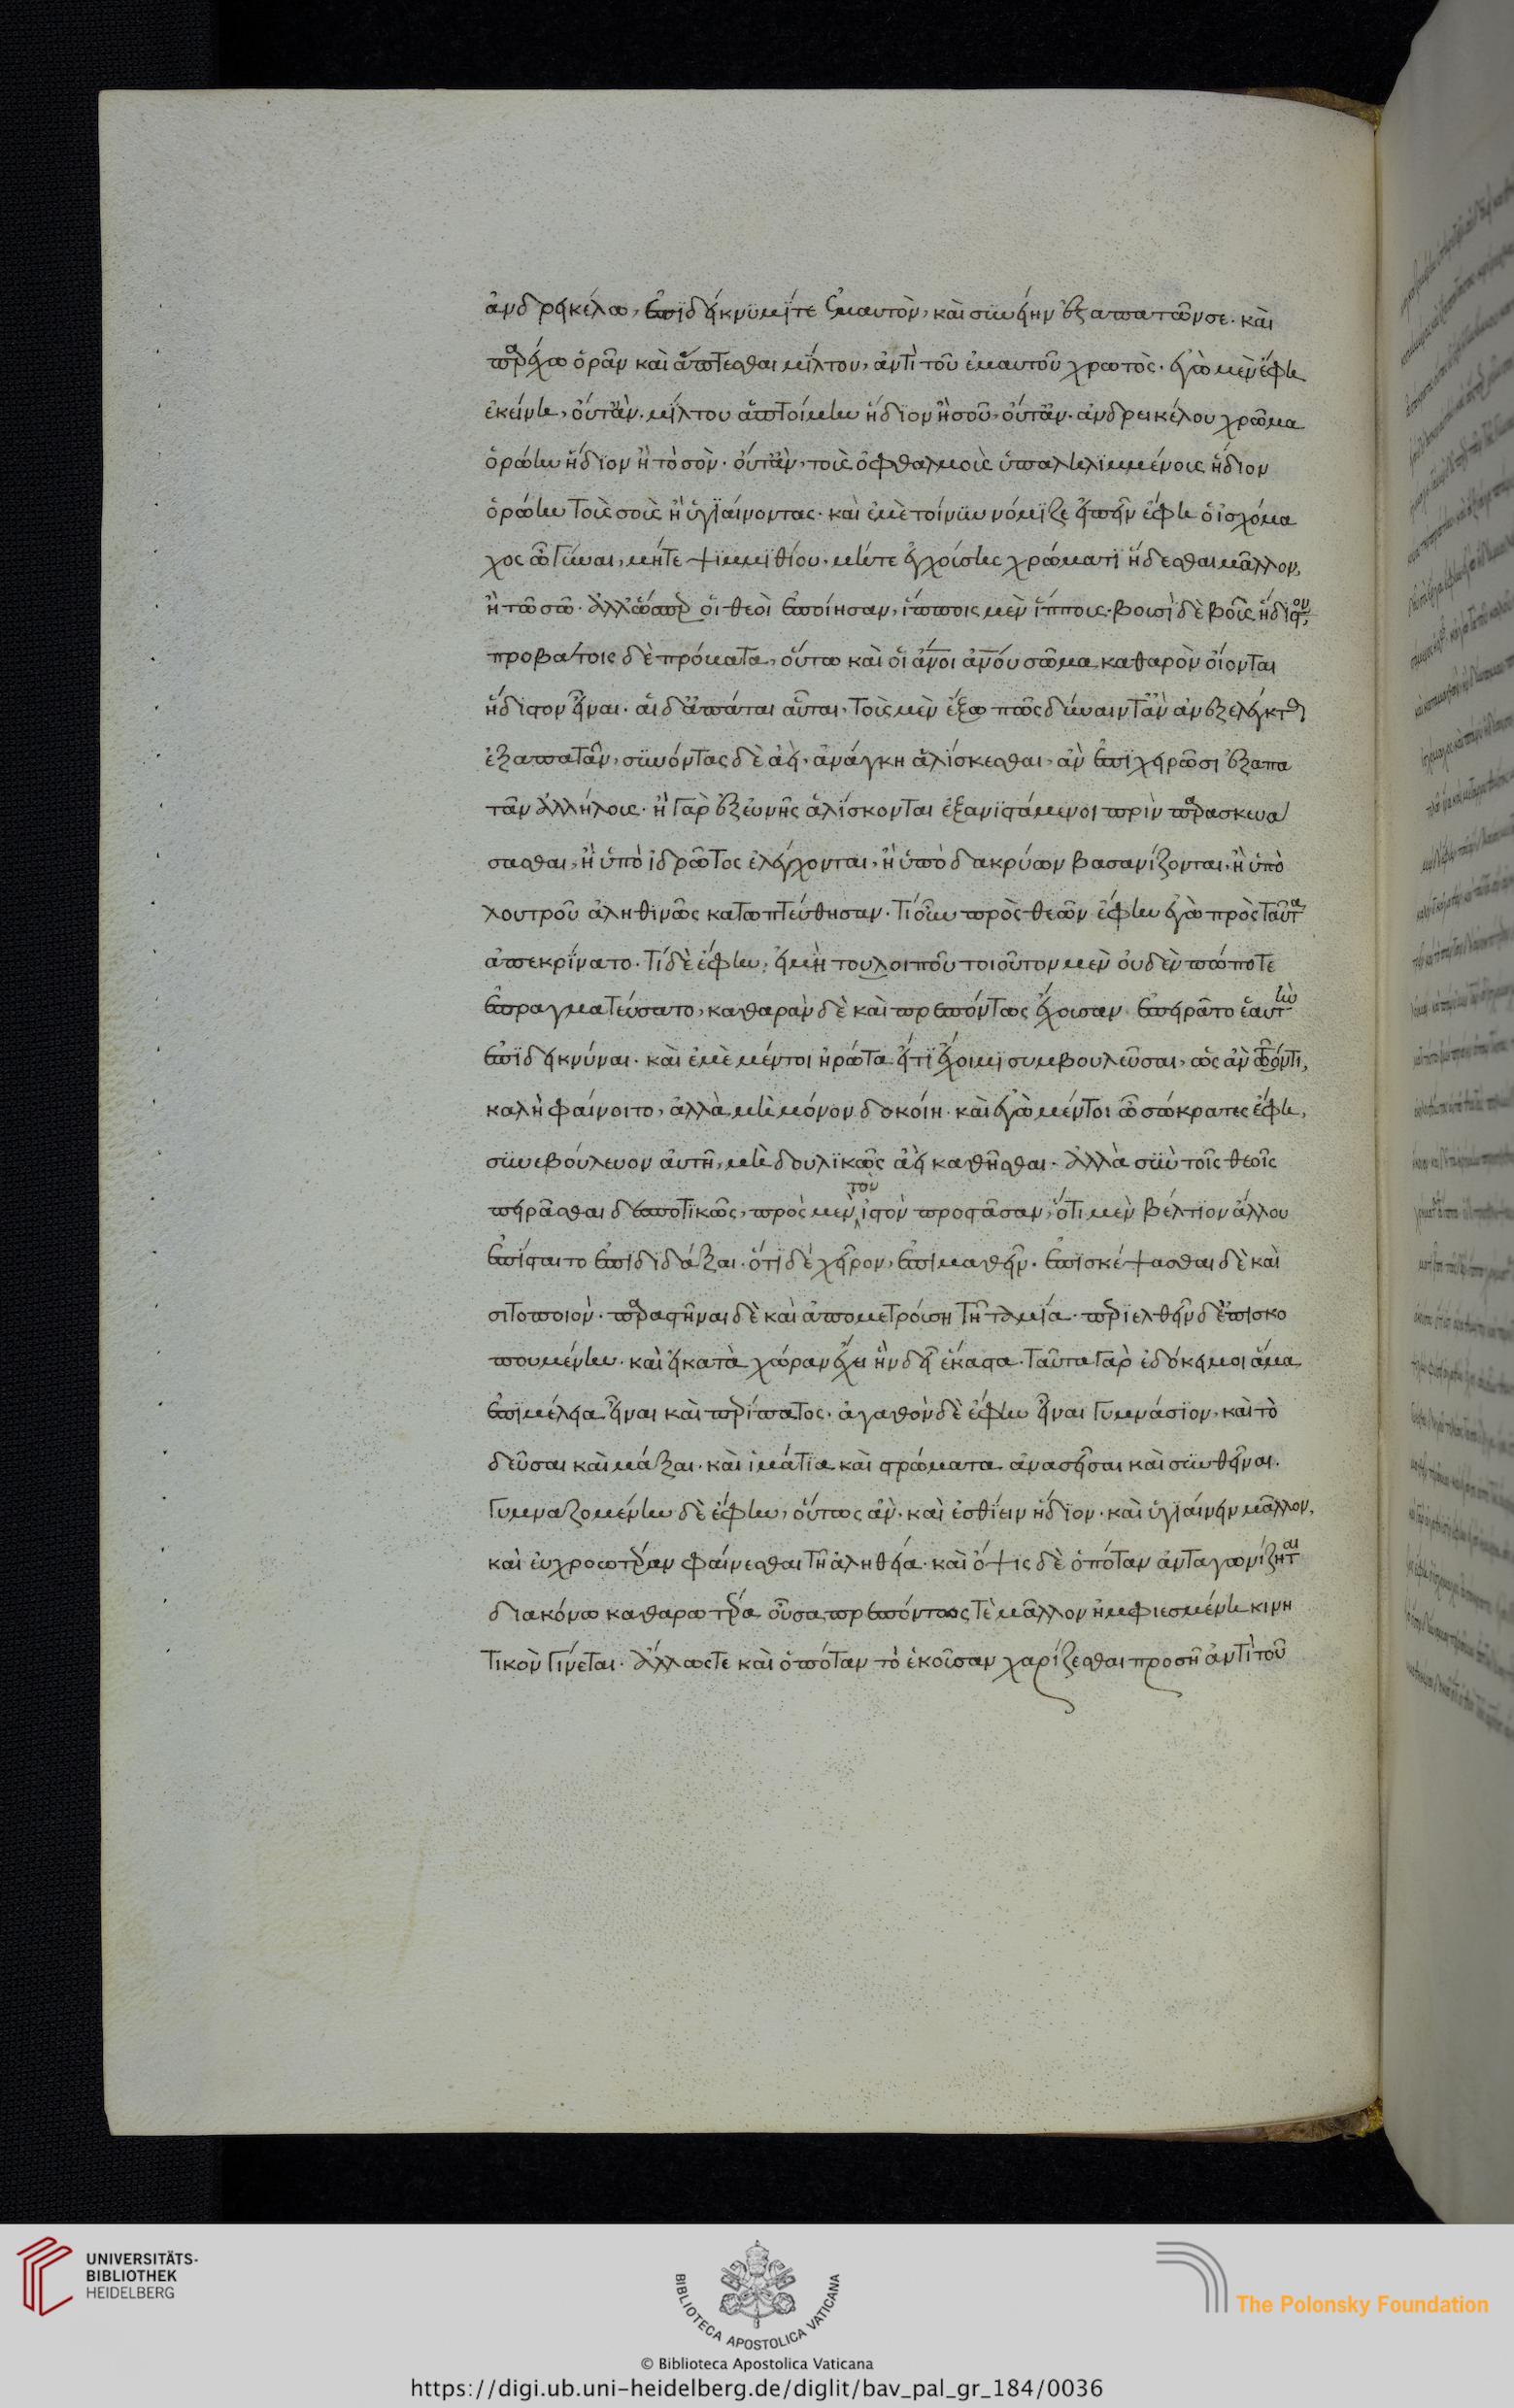 ἀνδρεικέλω, ἐπιδεικνύοιμί τε ἐμαυτὸν, καὶ συνείην ἐξαπατῶν σε. καὶ
παρέχω ὁρᾶν καὶ ἅπτεσθαι μίλτου, ἀντὶ τοῦ ἐμαυτοῦ χρωτὸς. ἐγὼ μὲν ἔφη
ἐκείνη, οὔτ' ἂν. μίλτου ἁπτοίμην ἥδιον ἢ σοῦ, οὔτ' ἂν. ἀνδρεικέλου χρῶμα
ὁρώην ἥδιον ἢ τὸ σὸν. οὔτ' ἂν, τοὶς ὀφθαλμοὶς ὑπαληλιμμένοις ἥδιον
ὁρώην τοὶς σοὶς ἢ ὑγιαίνοντας. καὶ ἐμὲ τοίνυν νόμιζε εἰπεῖν ἔφη ὁ ἰσχόμα
χος ὦ γύναι, μήτε ψιμμιθίου. μήτε ἐγχοίσης χρώματι ἥδεσθαι μᾶλλον,
ἢ τῶ σῶ. ἀλλ' ὥσπερ οἱ θεοὶ ἐποίησαν, ἵπποις μὲν ἵππους. βουσὶ δὲ βοῦς ἥδιστον,
προβάτοις δὲ πρόματα, οὕτω καὶ οἱ ἄνοι ἀνου σῶμα καθαρὸν οἴονται
ἥδιστον εἶναι. αἱ δ' ἀπάται αὗται, τοὶς μὲν ἔξω πῶς δύναιντ' ἂν ἀνεξελέγκτως
ἐξαπατᾶν, συνόντας δὲ ἀεὶ, ἀνάγκη ἁλίσκεσθαι, ἂν ἐπιχειρῶσι ἐξαπα
τᾶν ἀλλήλοις. ἢ γὰρ ἐξ εὐνῆς ἁλίσκονται ἐξανιστάμενοι πρὶν παρασκευα
σασθαι, ἢ ὑπὸ ἱδρῶτος ἐλέγχονται, ἢ ὑπὸ δακρύων βασανίζονται, ἢ ὑπὸ
λουτροῦ ἀληθινῶς κατωπτεύθησαν. τί οὖν πρὸς θεῶν ἔφην ἐγὼ πρὸς ταῦτα
ἀπεκρίνατο. τί δὲ ἔφην, εἰ μὴ τουλοιποῦ τοιοῦτον μὲν οὐδὲν πώποτε
ἐπραγματεύσατο, καθαρὰν δὲ καὶ πρεπόντως ἔχουσαν ἐπειρᾶτο ἑαυτὴν
ἐπιδεικνύναι. καὶ ἐμὲ μέντοι ἠρώτα εἴ τι ἔχοιμι συμβουλεῦσαι, ὡς ἂν τῶ ὄντι,
καλὴ φαίνοιτο, ἀλλὰ μὴ μόνον δοκοίη. καὶ ἐγὼ μέντοι ὦ σώκρατες ἔφη,
συνεβούλευον αὐτῆ, μὴ δουλικῶς ἀεὶ καθῆσθαι. ἀλλὰ σὺν τοῖς θεοῖς
πειρᾶσθαι δεσποτικῶς, πρὸς μὲν τὸν ἱστὸν προστᾶσαν, ὅτι μὲν βέλτιον ἄλλου
ἐπίσταιτο ἐπιδιδάξαι. ὅτι δὲ χεῖρον, ἐπιμαθεῖν. ἐπισκέψασθαι δὲ καὶ
σιτοποιὸν. παραστῆναι δὲ καὶ ἀπομετρούση τῆ ταμία. περιελθεῖν δ' ἐπισκο
πουμένην. καὶ εἰ κατὰ χώραν ἔχει ἣν δεῖ ἕκαστα. ταῦτα γὰρ ἐδόκει μοι ἅμα
ἐπιμέλεια εἶναι καὶ περίπατος. ἀγαθὸν δὲ ἔφην εἶναι γυμνάσιον, καὶ τὸ
δεῦσαι καὶ μάξαι. καὶ ἱμάτια καὶ στρώματα ἀνασεῖσαι καὶ συνθεῖναι.
γυμναζομένην δὲ ἔφην, οὕτως ἂν. καὶ ἐσθίειν ἥδιον. καὶ ὑγιαίνειν μᾶλλον,
καὶ εὐχροωτέραν φαίνεσθαι τῆ ἀληθεία. καὶ ὄψις δὲ ὁπόταν ἀνταγωνίζηται
διακόνω καθαρωτέρα οὖσα πρεπόντως τὲ μᾶλλον ἠμφιεσμένη κινη
τικὸν γίνεται. ἄλλως τε καὶ ὁπόταν τὸ ἑκοῦσαν χαρίζεσθαι προσῆ ἀντὶ τοῦ
UNIVERSITÄTS-
BIBLIOTHEK
HEIDELBERG
BIBLIOTECA APOSTOLICA VATICANA
The Polonsky Foundation
© Biblioteca Apostolica Vaticana
https://digi.ub.uni-heidelberg.de/diglit/bav_pal_gr_184/0036